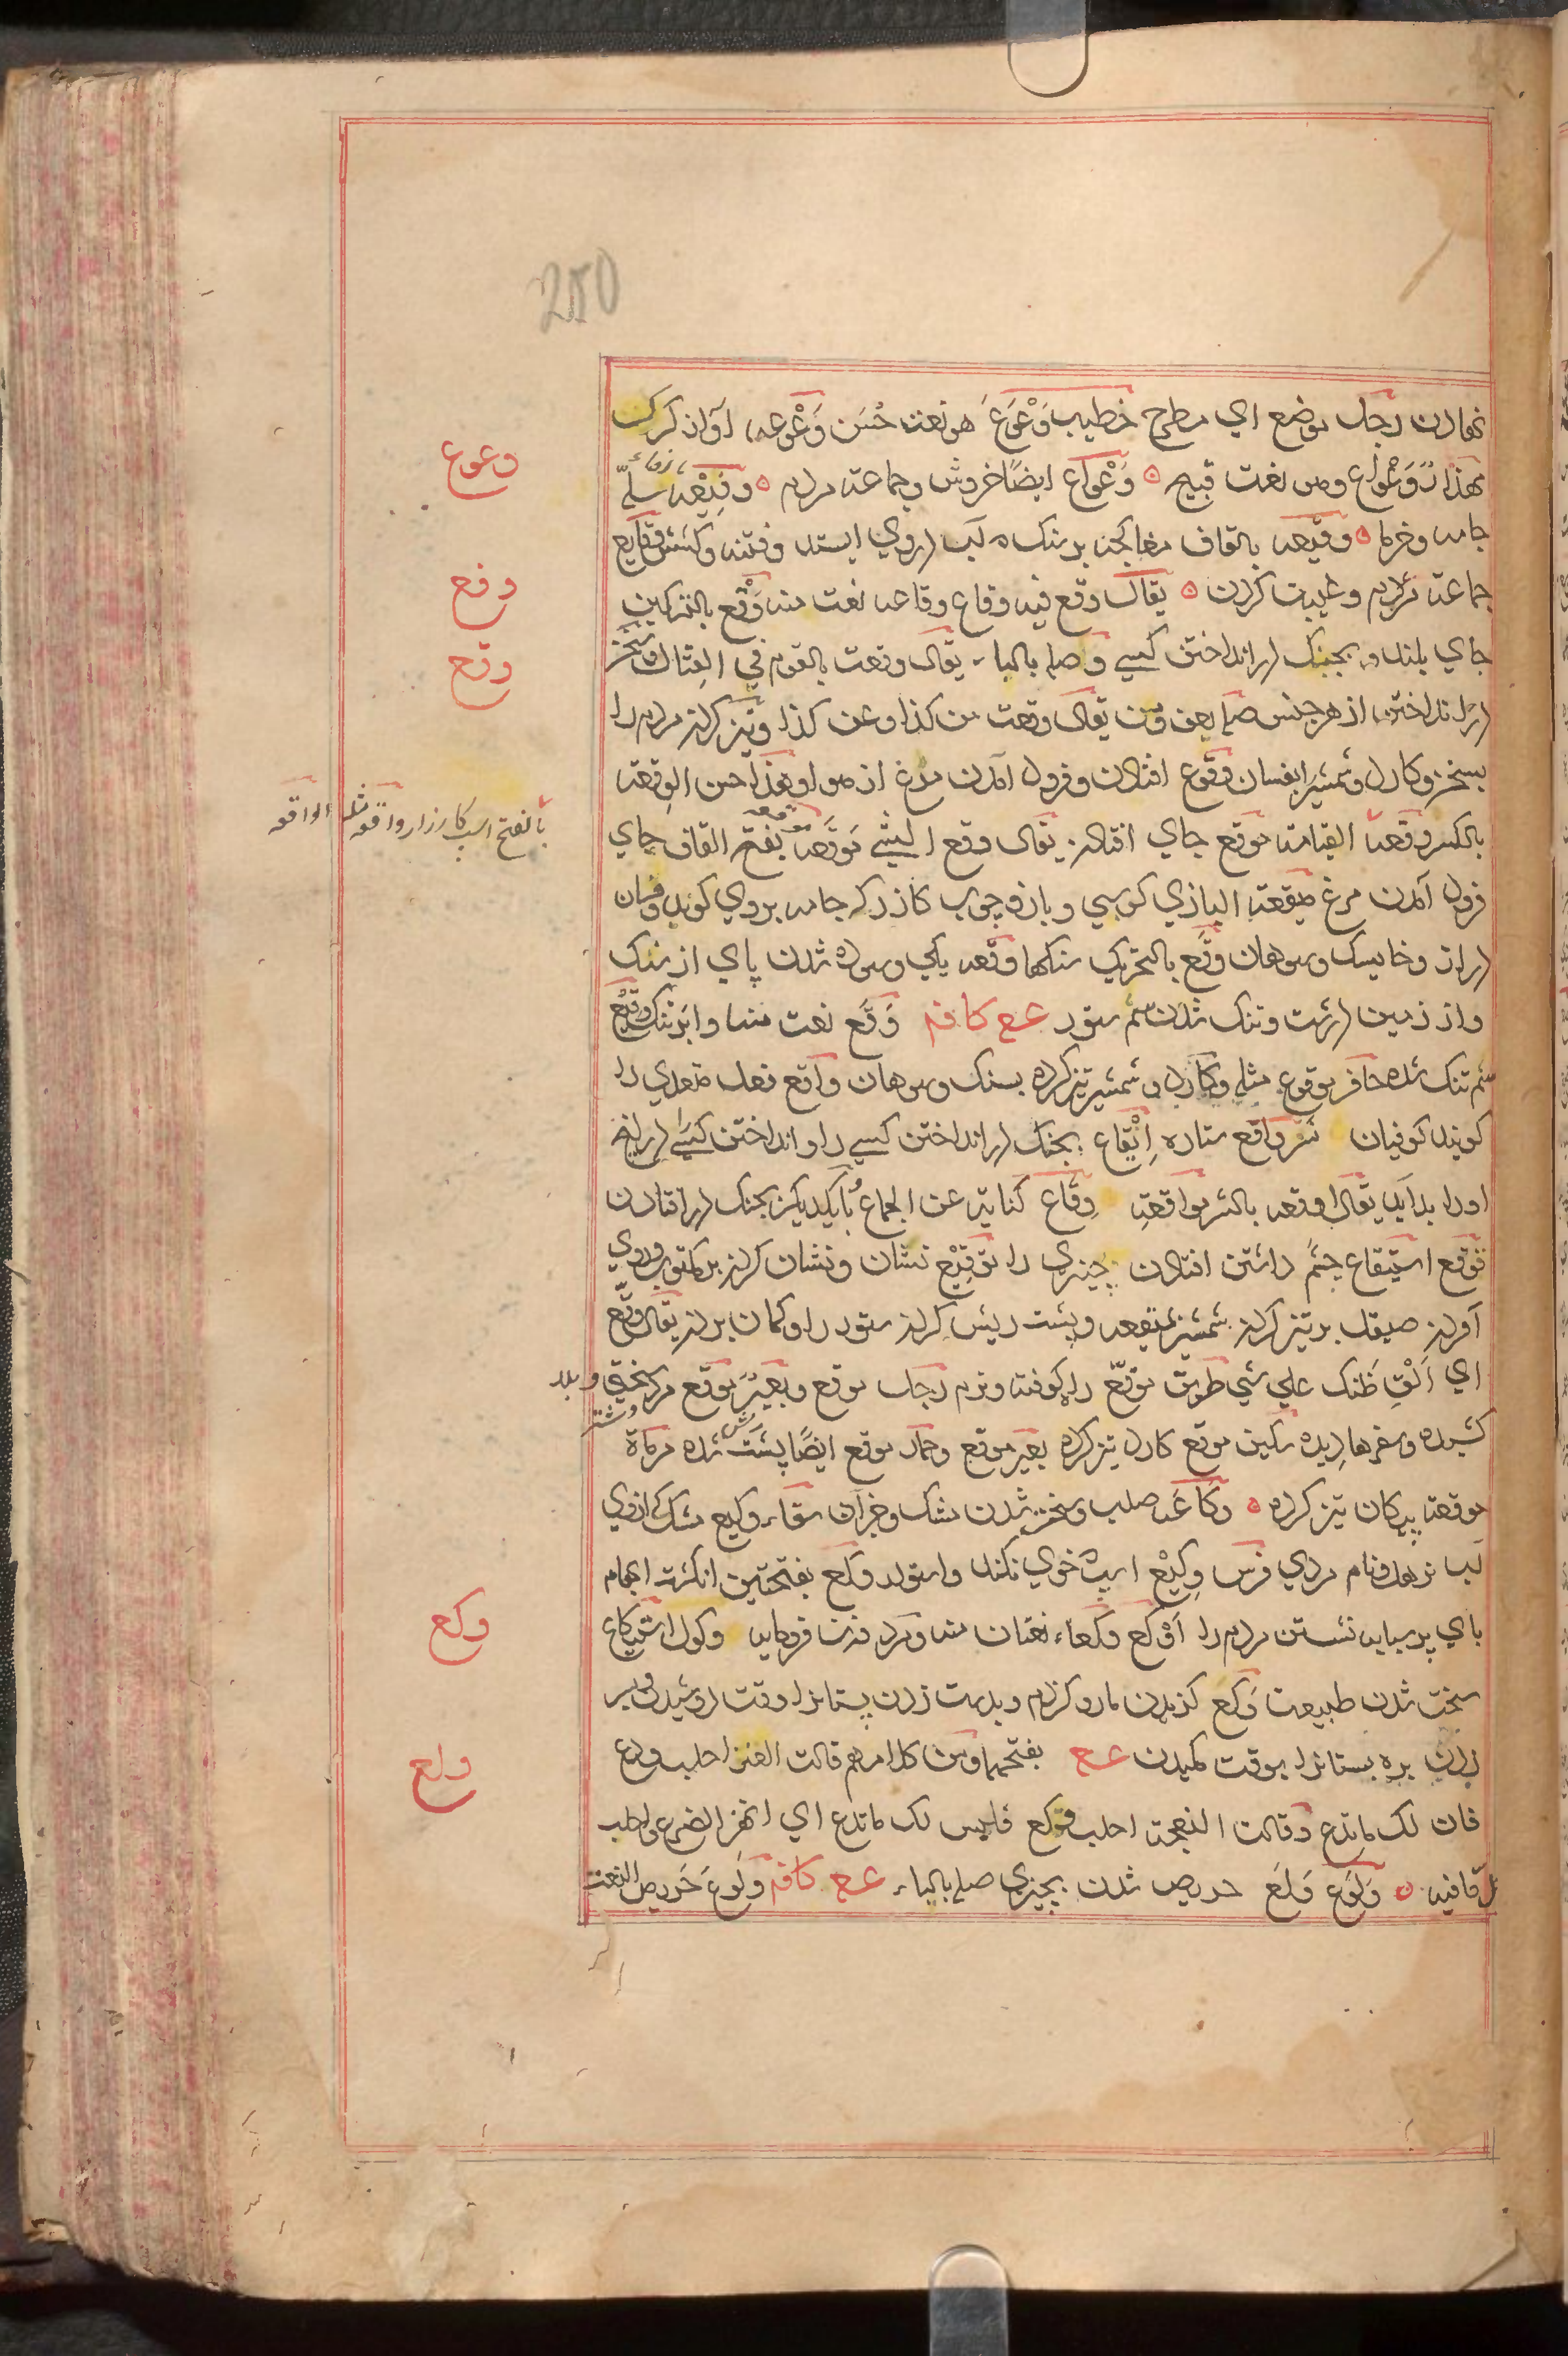 280
نهادن رجل موضع اي مطرح خطيب وَعْوَع هو نعت حَسَن وَعْوعه آواز كرك
وَعْواع وهو نعت قبيح ه وَعْواع ايضًا خروش وجماعة مردم ه وفيعه سلّه
جامه وخرما ه وقيعه بالقاف مغاكچه بر سنك كه آب دروي ايستد وفتنه وكشش وقايع
جماعة مردم وغيبت كردن ه يقال وقع فيه وقاع وقاعه نعت منه وَقْع بالتسكين
جاي بلند و بجنك در انداختن كسي وصله بالباء يقال وقعت بالقوم في القتال
در انداختن از هر جنس صله بعن ومن يقال وقعت من كذا وعن كذا وتيز كردن مردم را
وكارد وشمشير بفسان وقوع افتادن وفرود آمدن مرغ از هوا وهذا حسن الوقعة
بالكسر وقعة القيامة موقع جاي افتادن يقال وقع الشيء موقعه بفتح القاف جاي
فرود آمدن مرغ ميقعة البازي كرسي و باز وچوب كازر كه جامه بروي كوبد وفسان
دراز وخايسك وسوهان وقَع بالتحريك سنكها وقعه يكي وسوده شدن پاي از سنك
واز زمين درشت وتنك شدن سم ستور ع ع كا ف م وَقَع نعت منه وابر تنك وقيع
سم تنك شده حافر موقوع مثله وكارد و شمشير تيز كرده بسنك وسوهان واقع فعل متعدي را
كويند كوفيان نسر واقع ستاره اِيْقاع بجنك در انداختن كسي را و انداختن كسي را
اورا بد آيد يقال اوقعه بالشر مواقعة وِقاع كناية عن الجماع بايكديكر بجنك در افتادن
توقع استيقاع چشم داشتن افتادن چيزي را توقيع نشان ونشان كردن بر مكتوب وروي
آوردن صيقل بر تيز كردن شمشير بميقعه وپشت ريش كردن ستور را وكمان بردن يقال وقّع
اي اَلْقِ ظنك علي شي طريق موقّع راه كوفته ونرم رجل موقع وبعير موقع مرد سختي و بلا
كشيده وسفرها ديده سكين موقع كارد تيز كرده بعير موقع وحمار موقع ايضًا پشت ريش شده مرماة
موقعة پيكان تيز كرده ه وكاعه صلب وسخت شدن مشك وجز آن سقاء وكيع مشك كه ازوي
آب نرهد ونام مردي فرس وكِيْع اسپ خوي نكند واستوار وكع بفتحتين انكشت ابهام
باي بر سبابه نشستن مردم را اَوْكع وكعاء نعتان منه ومرد وزن فرومايه وكول استيكاع
سخت شدن طبيعت وَكع كزيدن مار وكزدم وبدست زدن پستانرا وقت دوشيدن و سر
زدن بره پستانرا بوقت مكيدن ع ع بفتحهما ومن كلامهم قالت العنز احلب ودع
فان لك ما تدع وقالت النعجة احلب وكع فليس لك ما تدع اي انهز الضرع واحلب
كل ما فيه ه وَلوع وَلَع حريص شدن بچيزي صله بالباء ع ع كا ف م ولوع حريص النعت
وعوع
وفع
وقع
بالفتح اسيب كارزار واقعه مثله الواقعه
وكع
ولع